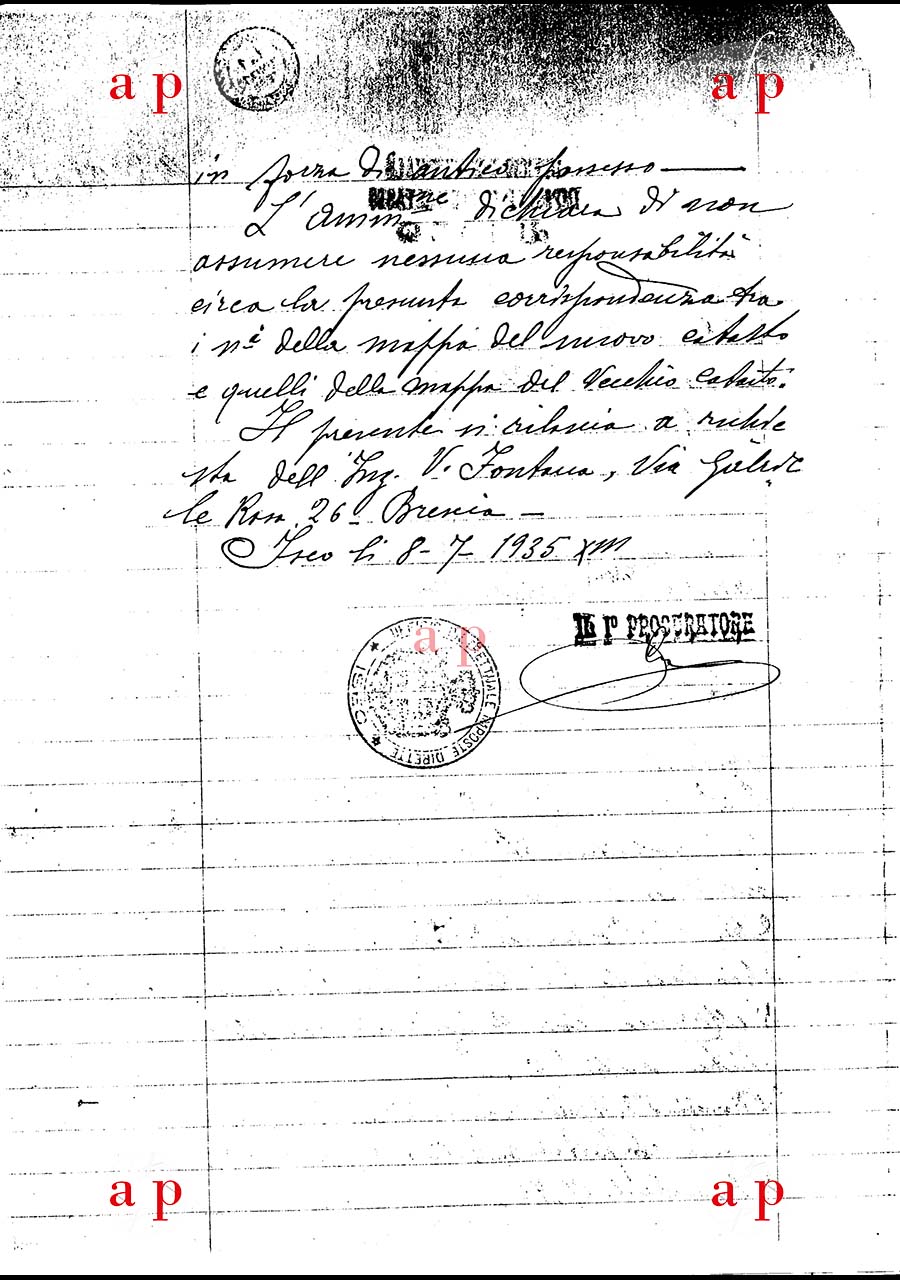 a p
a p
in forza di antico possesso
L'Amm.ne dichiara di non
assumere nessuna responsabilità
circa la presunta corrispondenza tra
i n.i della mappa del nuovo catasto
e quelli della mappa del Vecchio Catasto.
Il presente si rilascia a richie
sta dell'Ing. V. Fontana, Via Gabrie
le Rosa 26 - Brescia -
Iseo li 8-7-1935 XIII
IL 1° PROCURATORE
a p
ISEO
IMPOSTE DIRETTE
a p
a p